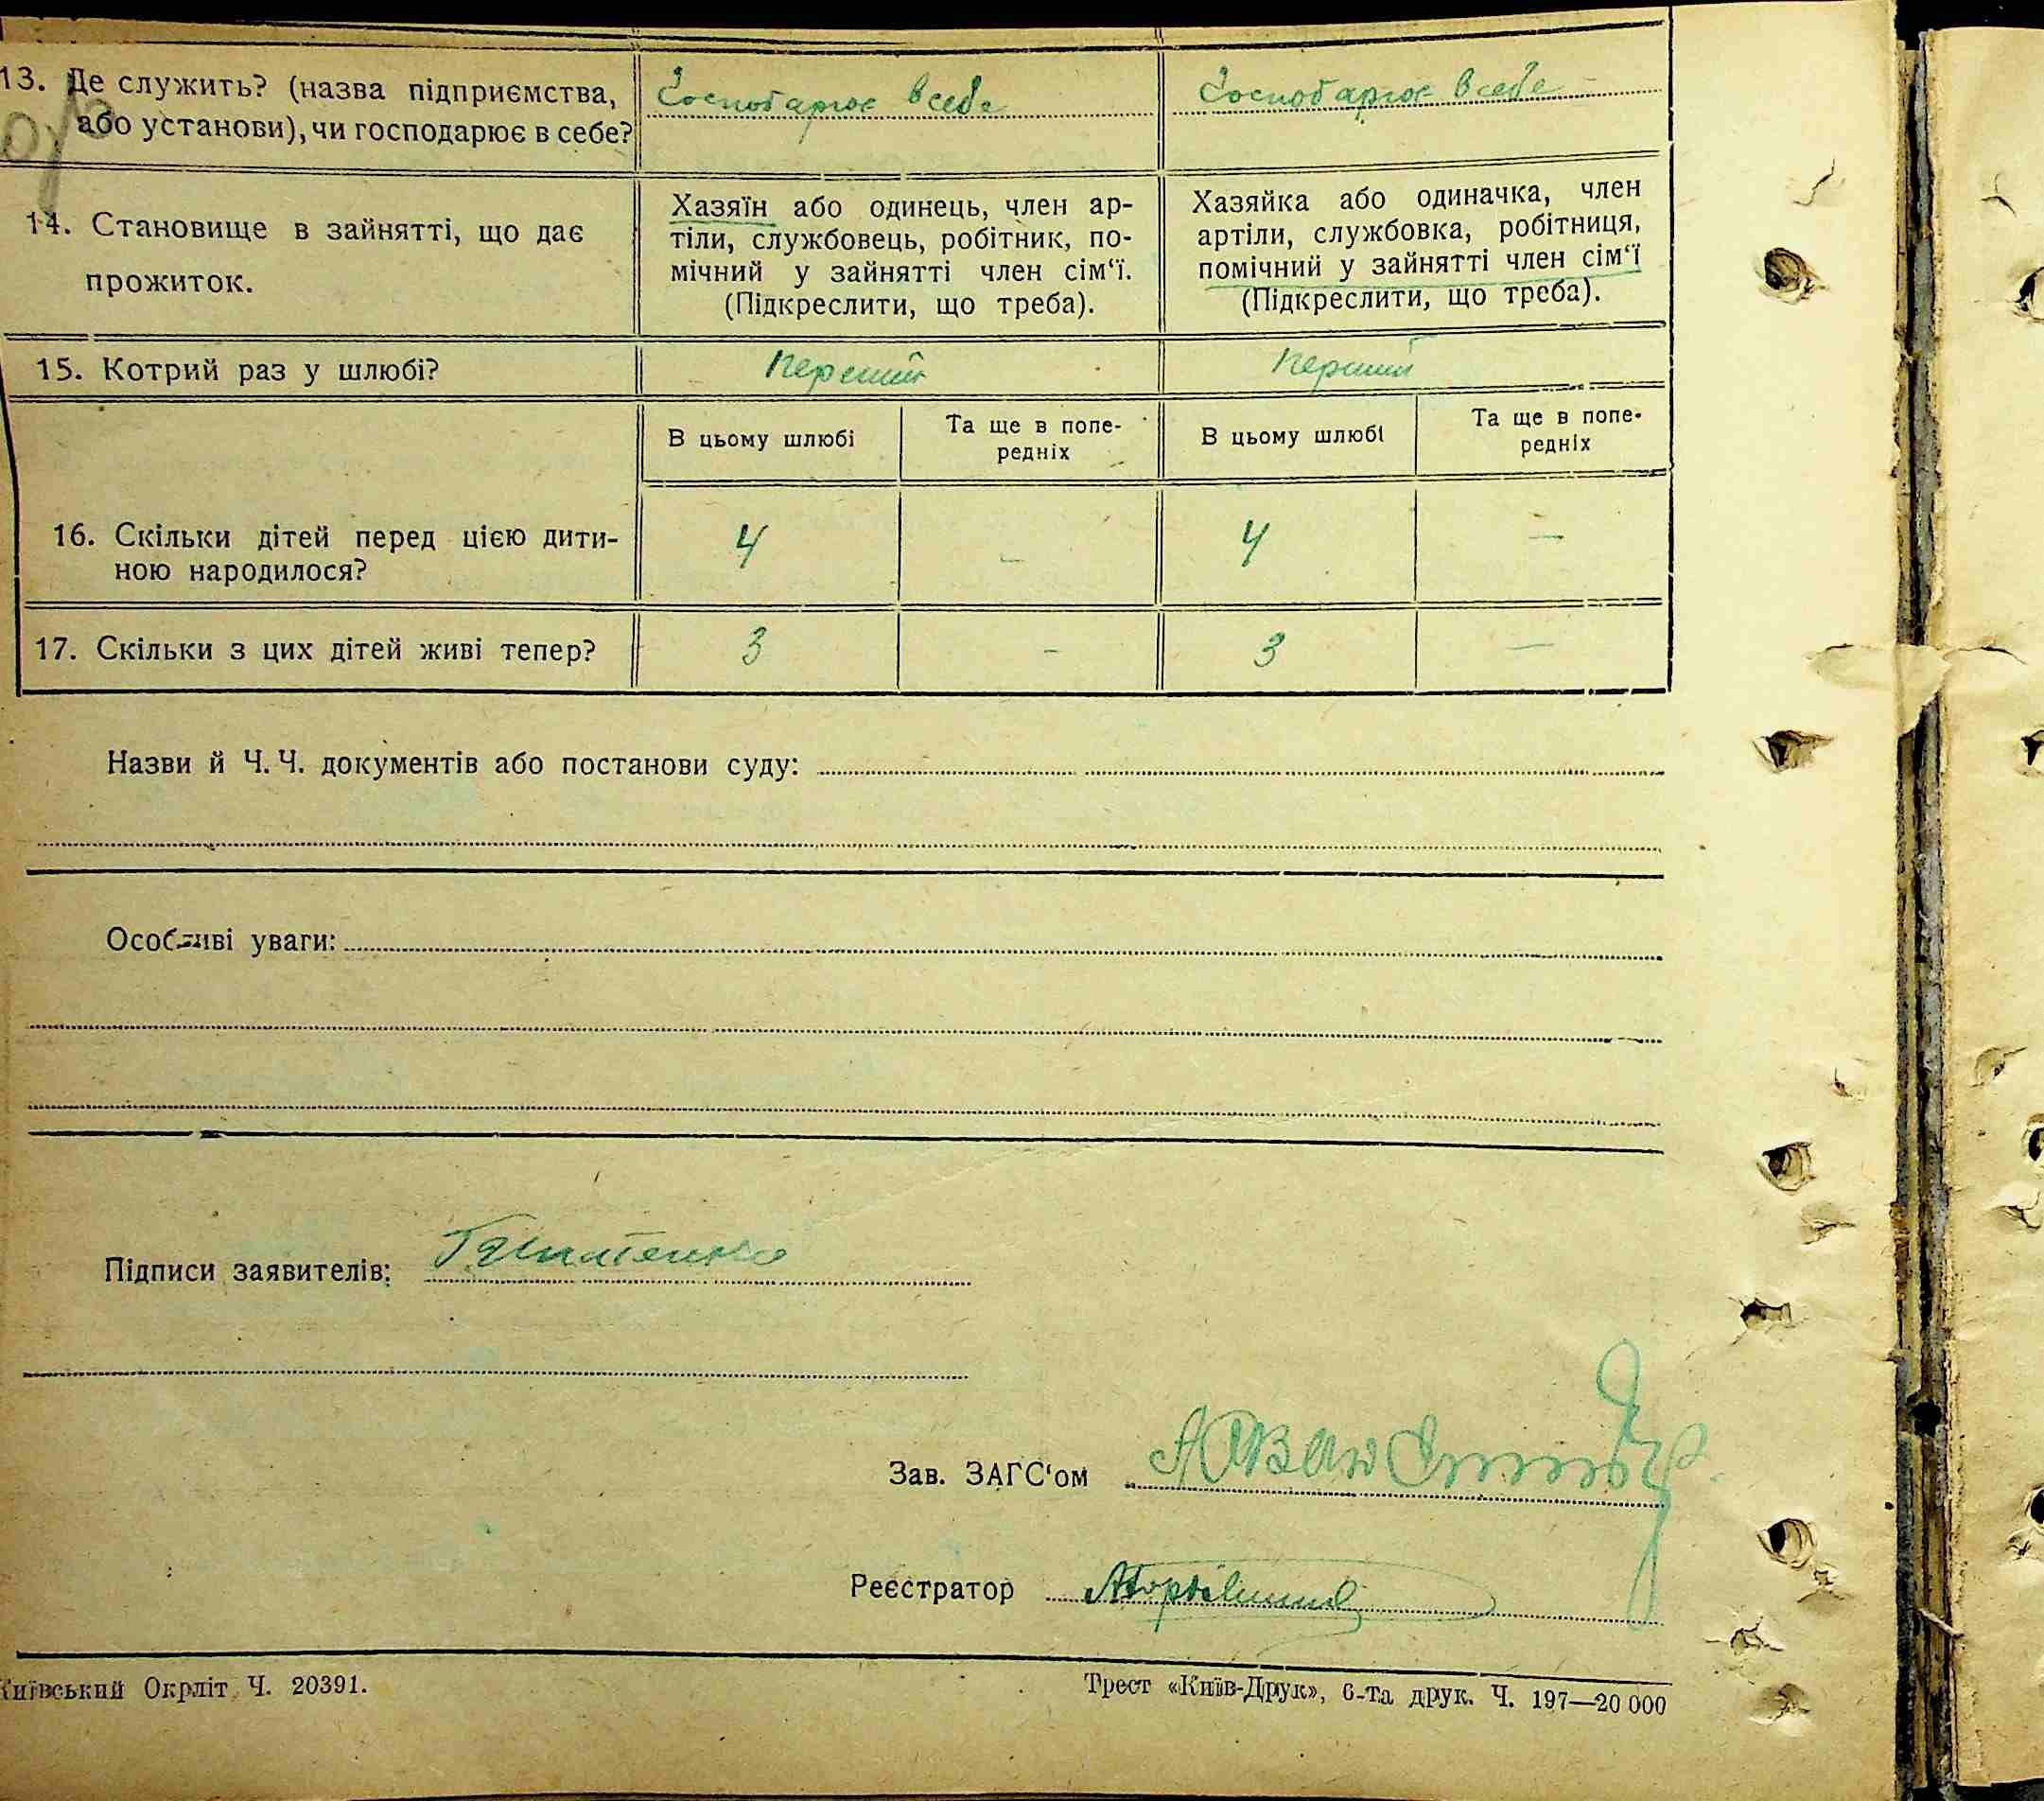 13. Де служить? (назва підприємства,
або установи), чи господарює в себе?
Господарює в себе
Господарює в себе
14. Становище в зайнятті, що дає
прожиток.
Хазяїн або одинець, член ар-
тіли, службовець, робітник, по-
мічний у зайнятті член сім‘ї.
(Підкреслити, що треба).
Хазяйка або одиначка, член
артіли, службовка, робітниця,
помічний у зайнятті член сім‘ї
(Підкреслити, що треба).
15. Котрий раз у шлюбі?
Перший
Перший
В цьому шлюбі
Та ще в попе-
редніх
В цьому шлюбі
Та ще в попе-
редніх
16. Скільки дітей перед цією дити-
ною народилося?
4
–
4
–
17. Скільки з цих дітей живі тепер?
3
–
3
–
Назви й Ч. Ч. документів або постанови суду:
Особливі уваги:
Підписи заявителів:
Зав. ЗАГС‘ом
Реєстратор
Київський Окрліт Ч. 20391.
Трест «Київ-Друк», 6-та друк. Ч. 197—20 000